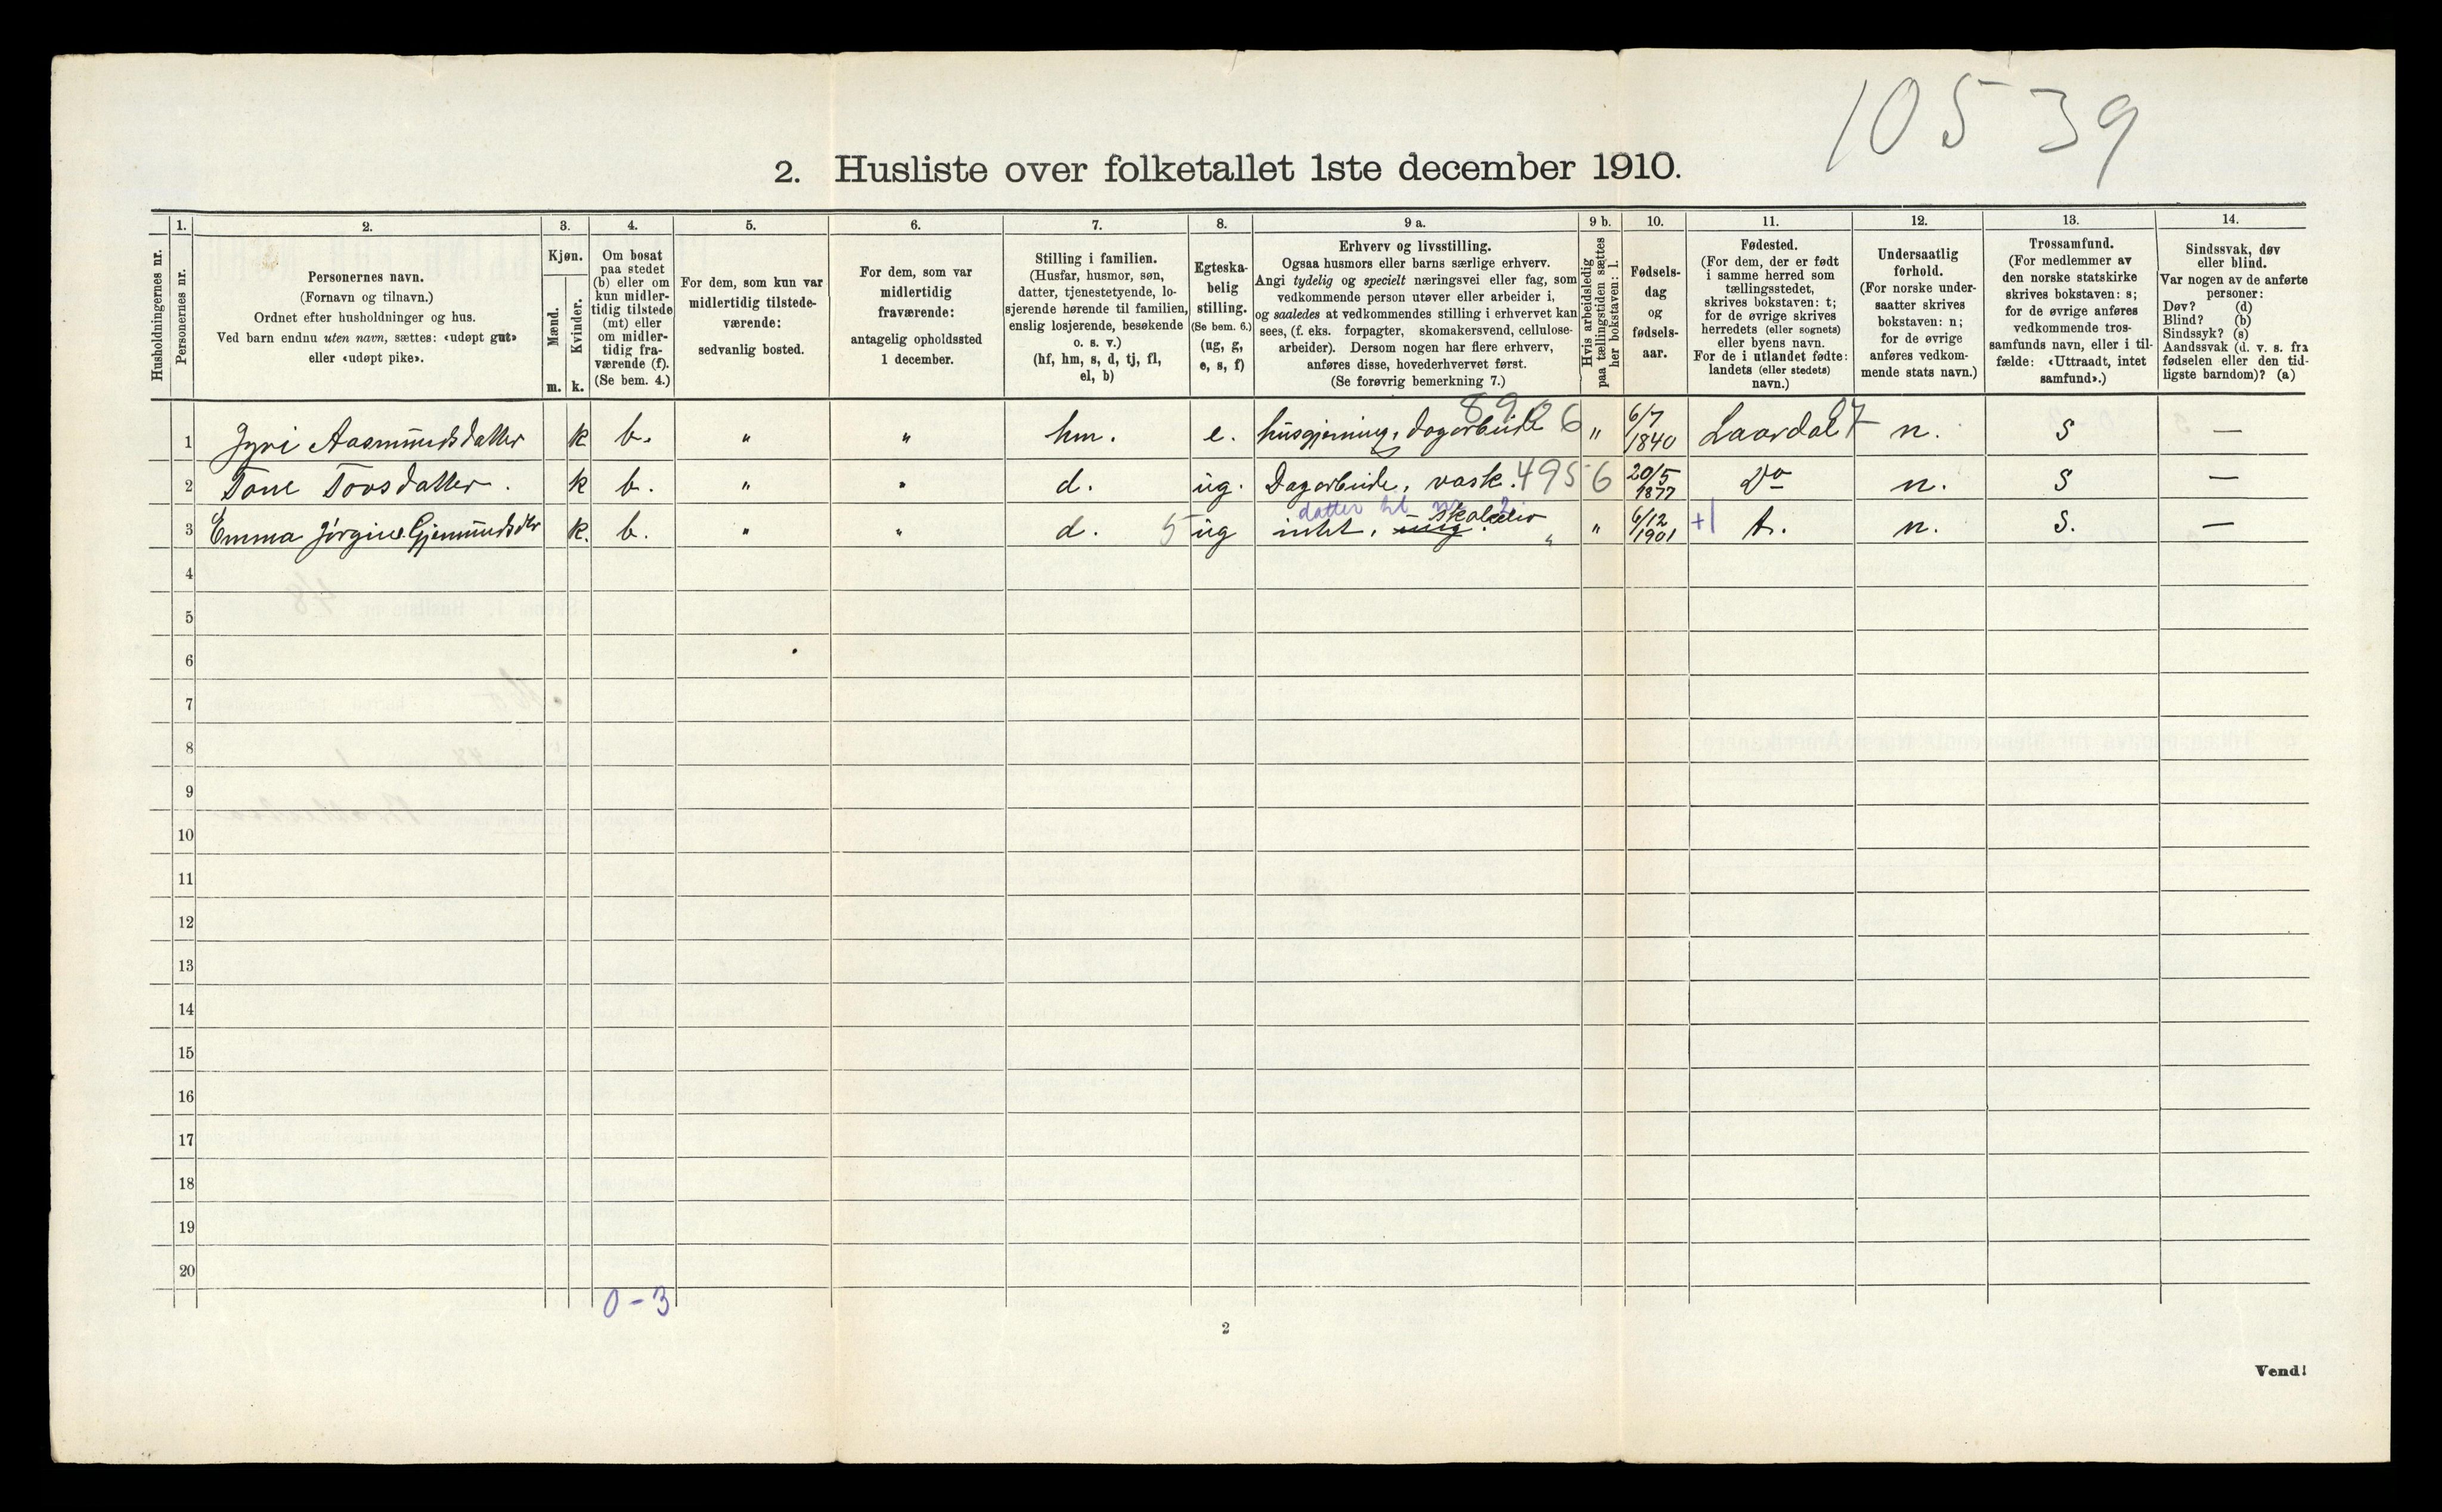 10539
2. Husliste over folketallet 1ste december 1910.
Husholdningernes nr.
1.
Personernes nr.
2.
Personernes navn.
(Fornavn og tilnavn.)
Ordnet efter husholdninger og hus.
Ved barn endnu uten navn, sættes: «udøpt gut»
eller «udøpt pike».
3.
Kjøn.
Mænd.
m.
Kvinder.
k.
4.
Om bosat
paa stedet
(b) eller om
kun midler-
tidig tilstede
(mt) eller
om midler-
tidig fra-
værende (f).
(Se bem. 4.)
5.
For dem, som kun var
midlertidig tilstede-
værende:
sedvanlig bosted.
6.
For dem, som var
midlertidig
fraværende:
antagelig opholdssted
1 december.
7.
Stilling i familien.
(Husfar, husmor, søn,
datter, tjenestetyende, lo-
sjerende hørende til familien,
enslig losjerende, besøkende
o. s. v.)
(hf, hm, s, d, tj, fl,
el, b)
8.
Egteska-
belig
stilling.
(Se bem. 6.)
(ug, g,
e, s, f)
9 a.
Erhverv og livsstilling.
Ogsaa husmors eller barns særlige erhverv.
Angi tydelig og specielt næringsvei eller fag, som
vedkommende person utøver eller arbeider i,
og saaledes at vedkommendes stilling i erhvervet kan
sees, (f. eks. forpagter, skomakersvend, cellulose-
arbeider). Dersom nogen har flere erhverv,
anføres disse, hovederhvervet først.
(Se forøvrig bemerkning 7.)
9 b.
Hvis arbeidsledig
paa tællingstiden sættes
her bokstaven: l.
10.
Fødsels-
dag
og
fødsels-
aar.
11.
Fødested.
(For dem, der er født
i samme herred som
tællingsstedet,
skrives bokstaven: t;
for de øvrige skrives
herredets (eller sognets)
eller byens navn.
For de i utlandet fødte:
landets (eller stedets)
navn.)
12.
Undersaatlig
forhold.
(For norske under-
saatter skrives
bokstaven: n;
for de øvrige
anføres vedkom-
mende stats navn.)
13.
Trossamfund.
(For medlemmer av
den norske statskirke
skrives bokstaven: s;
for de øvrige anføres
vedkommende tros-
samfunds navn, eller i til-
fælde: «Uttraadt, intet
samfund».)
14.
Sindssvak, døv
eller blind.
Var nogen av de anførte
personer:
Døv? (d)
Blind? (b)
Sindssyk? (s)
Aandssvak (d. v. s. fra
fødselen eller den tid-
ligste barndom)? (a)
1 Jyri Aasmundsdatter k b. " " hm. e. husgjerning, dagarbeide 6 " 6/7 1840 Laardal n. s —
2 Tone Tovsdatter. k b. " " d. ug. Dagarbeide, vask. 495 6 20/5 1877 Do n. s —
datter til nr 2
3 Emma Jørgine Gjermundsdtr k. b. " " d. 5 ug intet. " " 6/12 1901 +1 t. n. s. —
4
5
6
7
8
9
10
11
12
13
14
15
16
17
18
19
20
0-3
2
Vend!